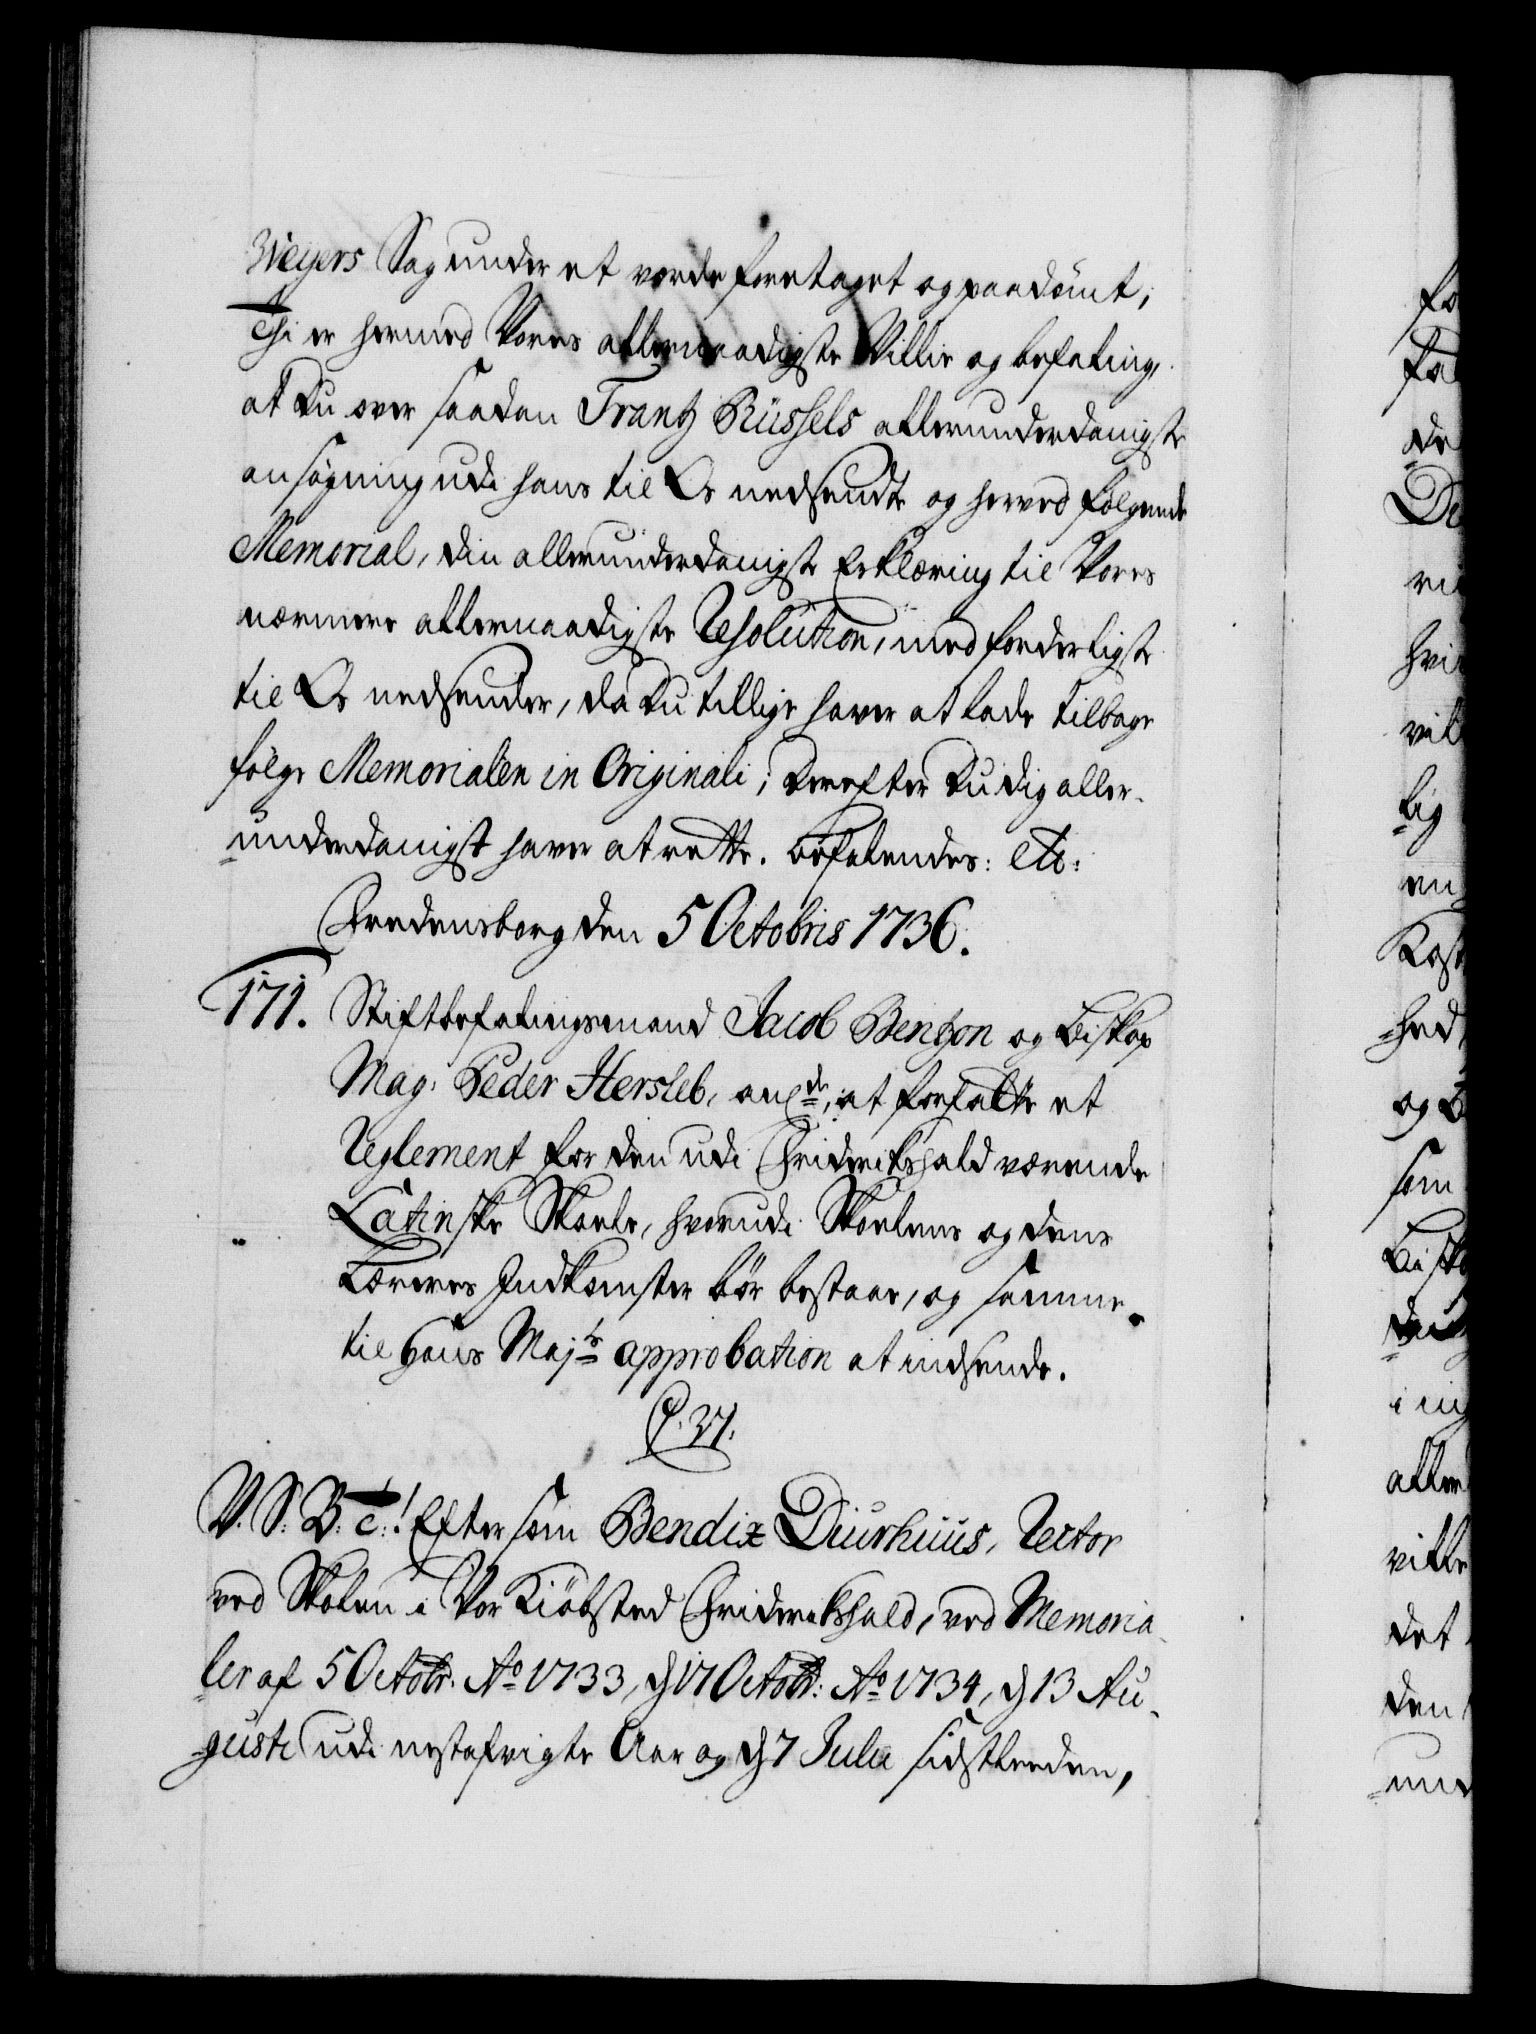 Weyers Sag under et vorde foretaget og paadömt;
Thi er hermed Vores allernaadigste Villie og befaling,
at du over saadan Frantz Rüssels allerunderdanigste
ansøgning udi hans til Os nedsendte og herved følgende
Memorial, din allerunderdanigste Erklæring til Vores
nærmere allernaadigste Resolution, med forderligste
til Os nedsender, da du tillige haver at lade tilbage
følge Memorialen in Originali; derefter du dig aller-
underdanigst haver at rette. befalendes: etc:
Fredensborg den 5 Octobris 1736.
171. Stiftbefalingsmand Jacob Bentzon og Biskop
Mag: Peder Hersleb, at forfatte et
Reglement for den udi Friderikshald værende
Latinske Skoele, hvorudi Skoelens og dens
Læreres Indkomster bör bestaae, og samme
til Hans Majts approbation at indsende.
C. VI.
V. S. B. etc:! Eftersom Bendix Diurhuus, Rector
ved Skolen i Vor Kiöbsted Friderikshald, ved Memoria-
ler af 5 Octobr. Ao 1733, d 17 Octobr: Ao 1734, d 13 Au-
gusti udi nestafvigte Aar og d 7 Julii sidstleeden,